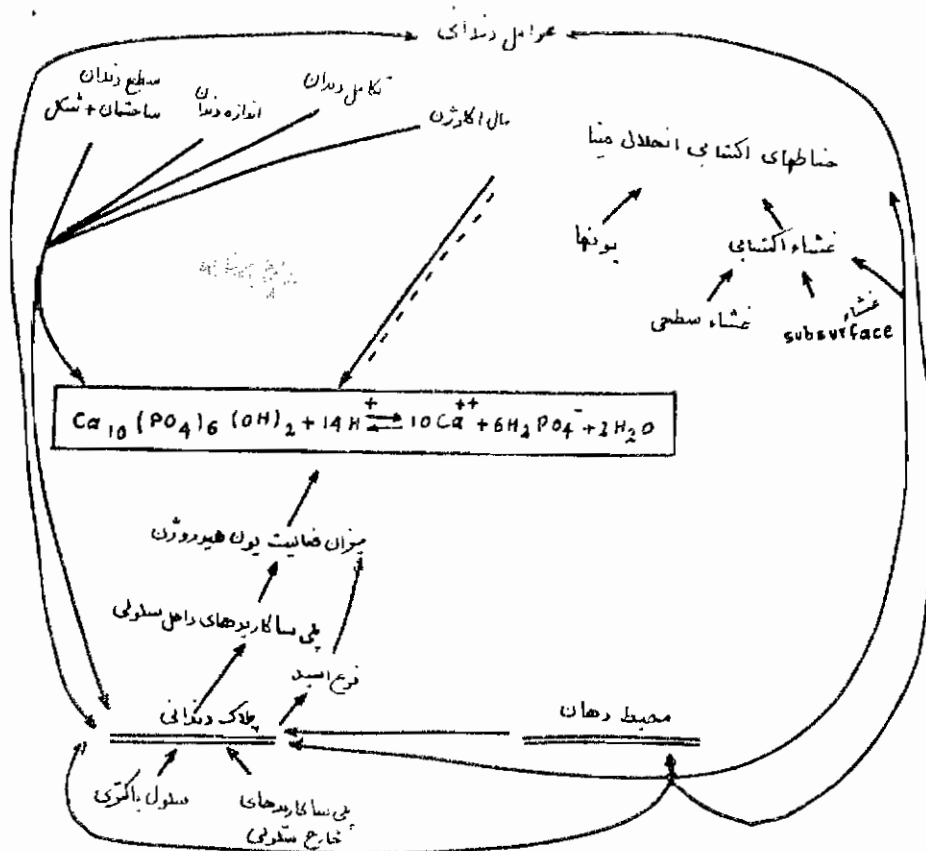 عوامل دندانی
سطح دندان
ساختمان + شکل
اندازه دندان
تکامل دندان
مال اکلوژن
انحلال مینا
اکتسابی
یونها
غشاء اکتسابی
غشاء سطحی
غشاء
subsurface
Ca10 (PO4)6 (OH)2 + 14H+ ⇌ 10Ca++ + 6H2PO4- + 2H2O
میزان فعالیت یون هیدروژن
پلی ساکاریدهای داخل سلولی
نوع اسید
پلاک دندانی
محیط دهان
سلول باکتری
پلی ساکاریدهای
خارج سلولی